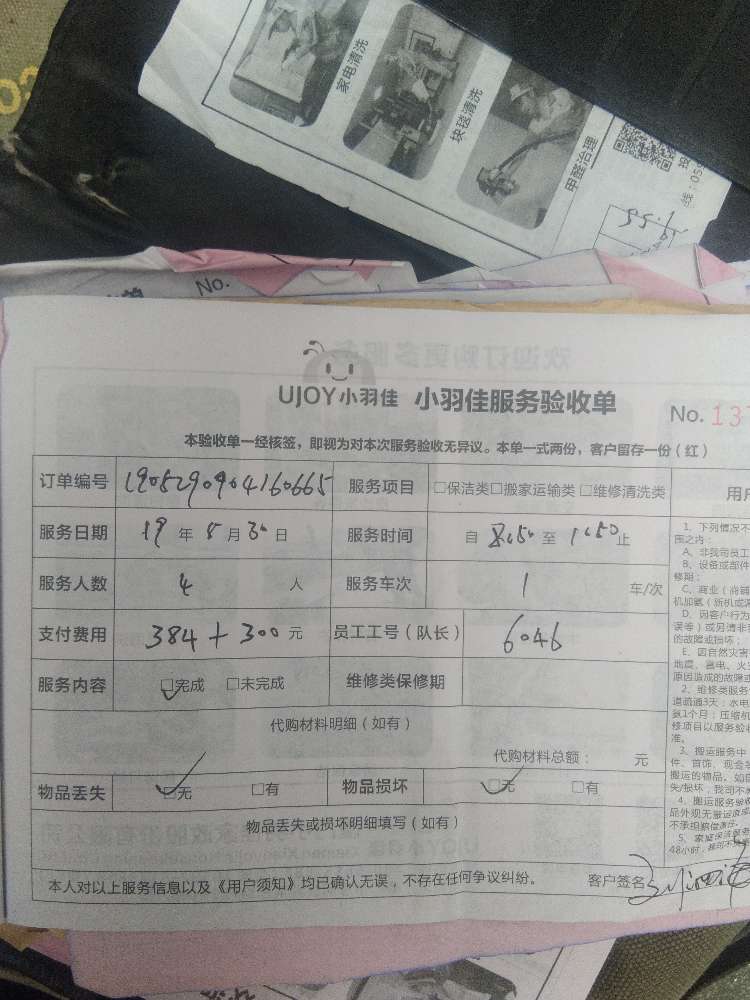 家电清洗
块毯清洗
甲醛治理
No.
UJOY小羽佳 小羽佳服务验收单
No. 137
本验收单一经核签，即视为对本次服务验收无异议。本单一式两份，客户留存一份（红）
订单编号 1905290904160665 服务项目 □保洁类□搬家运输类□维修清洗类
服务日期 19 年 5 月 30 日 服务时间 自 8:50 至 止
服务人数 4 人 服务车次 1 车/次
支付费用 384+300 元 员工工号（队长） 6046
服务内容 □完成 □未完成 维修类保修期
代购材料明细（如有）
代购材料总额： 元
物品丢失 □无 □有 物品损坏 □无 □有
物品丢失或损坏明细填写（如有）
本人对以上服务信息以及《用户须知》均已确认无误，不存在任何争议纠纷。 客户签名
用户
1、下列情况不
围之内：
A、非我司员工
B、设备或部件
修期；
C、商业（商铺
机加氟（新机或
D、因客户行为
误等）或另请非
的故障或损坏；
E、因自然灾害
地震、雷电、火
原因造成的故障或
2、维修类服务
道疏通3天；水电
氨1个月；压缩机
修项目以服务验收
准。
3、搬运服务中
件、首饰、现金等
搬运的物品。如因
失/损坏，我司不
4、搬运服务验收
品外观无
不承担赔偿责任。
5、家庭保洁服务
48小时，